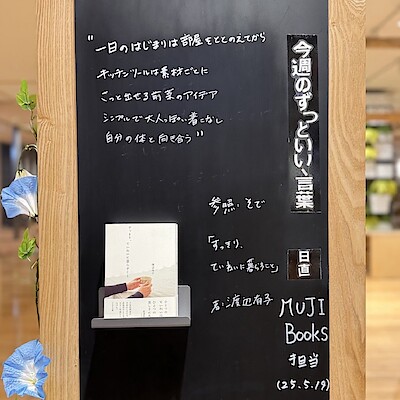 "一日のはじまりは部屋をととのえてから
キッチンツールは素材ごとに
さっと出せる前菜のアイデア
シンプルで大人っぽい着こなし
自分の体と向き合う"
今週のずっといい、言葉
参照、そで
「すっきり、
ていねいに暮らすこと」
著:渡辺有子
日直
MUJI
Books
担当
(25.5.19)